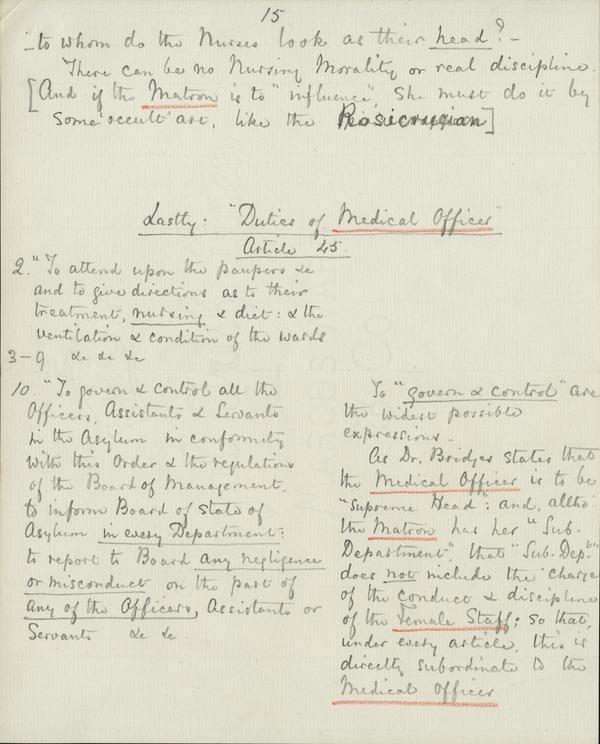 15
- to whom do the Nurses look as their head? -
There can be no Nursing Morality or real discipline.
[And if the Matron is to "influence", she must do it by
some 'occult' art, like the Rosicrucian]
Lastly: "Duties of Medical Officer"
Article 45.
2. "To attend upon the paupers &c
and to give directions as to their
treatment, nursing & diet: & the
ventilation & condition of the wards
3-9 &c &c &c
10. "To govern & control all the
Officers, Assistants & Servants
in the Asylum in conformity
with this Order & the regulations
of the Board of Management.
to inform Board of state of
Asylum in every Department:
to report to Board any negligence
or misconduct on the part of
any of the Officers, Assistants or
Servants &c &c
To "govern & control" are
the widest possible
expressions.
As Dr. Bridges states that
the Medical Officer is to be
"Supreme Head": and, altho'
the Matron has her "Sub-
Department", that "Sub-Dept"
does not include the charge
of the conduct & discipline
of the Female Staff: so that,
under every article, this is
directly subordinate to the
Medical Officer